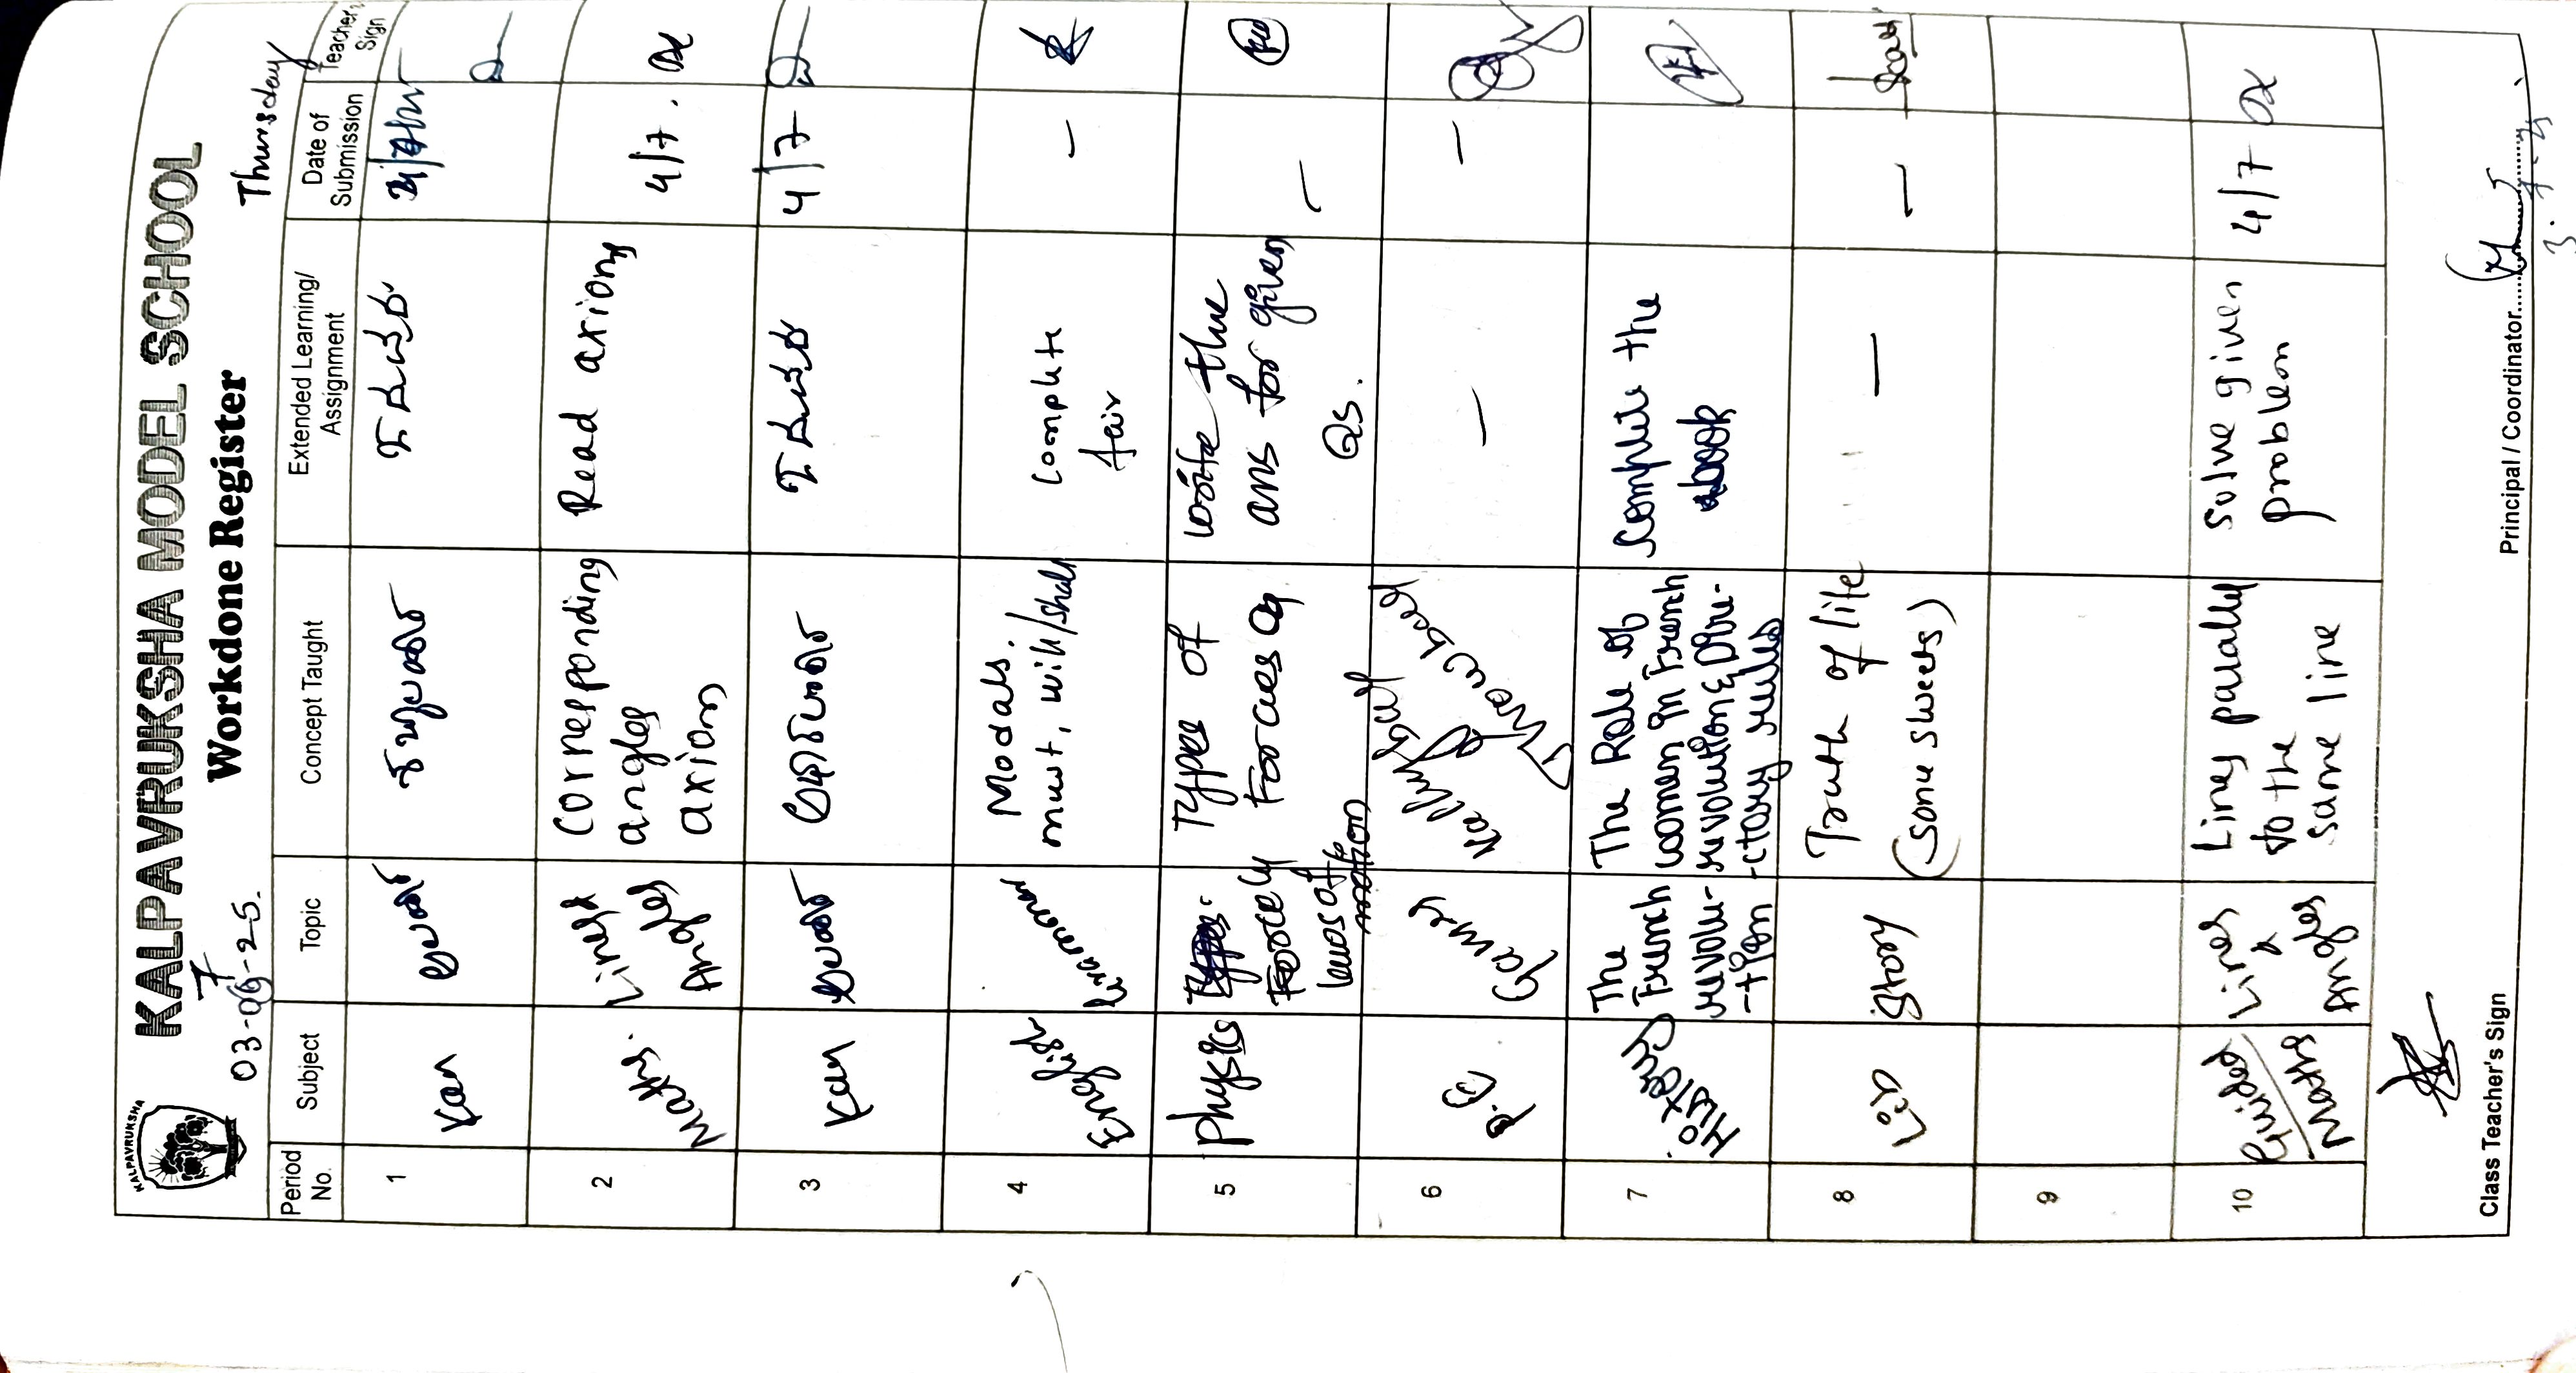 KALPAVRUKSHA
KALPAVRUKSHA MODEL SCHOOL
Workdone Register
03-06-25.
7
Thursday
Period No.
Subject
Topic
Concept Taught
Extended Learning/ Assignment
Date of Submission
Teacher's Sign
1
Kan
2
Maths.
Lines &
Angles
Corresponding
angles
axiom
Read axioms
4/7.
3
Kan
4/7
4
English
Grammar
Modals.
must, will/shall
Complete
fair
-
5
Physics
Force &
laws of
motion
Types of
Forces
write the
ans for given
Qs.
-
6
P.E
Games
Throw ball
-
-
7
History
The
French
revolu-
-tion
The Role of
women in French
revolution & Dire-
-ctory rules
complete the
book
8
Lib
Story
Truth of life
(some sweets)
-
-
9
10
Guided
Maths
Lines
&
Angles
Lines parallel
to the
same line
Solve given
problem
4/7
Class Teacher's Sign
Principal / Coordinator